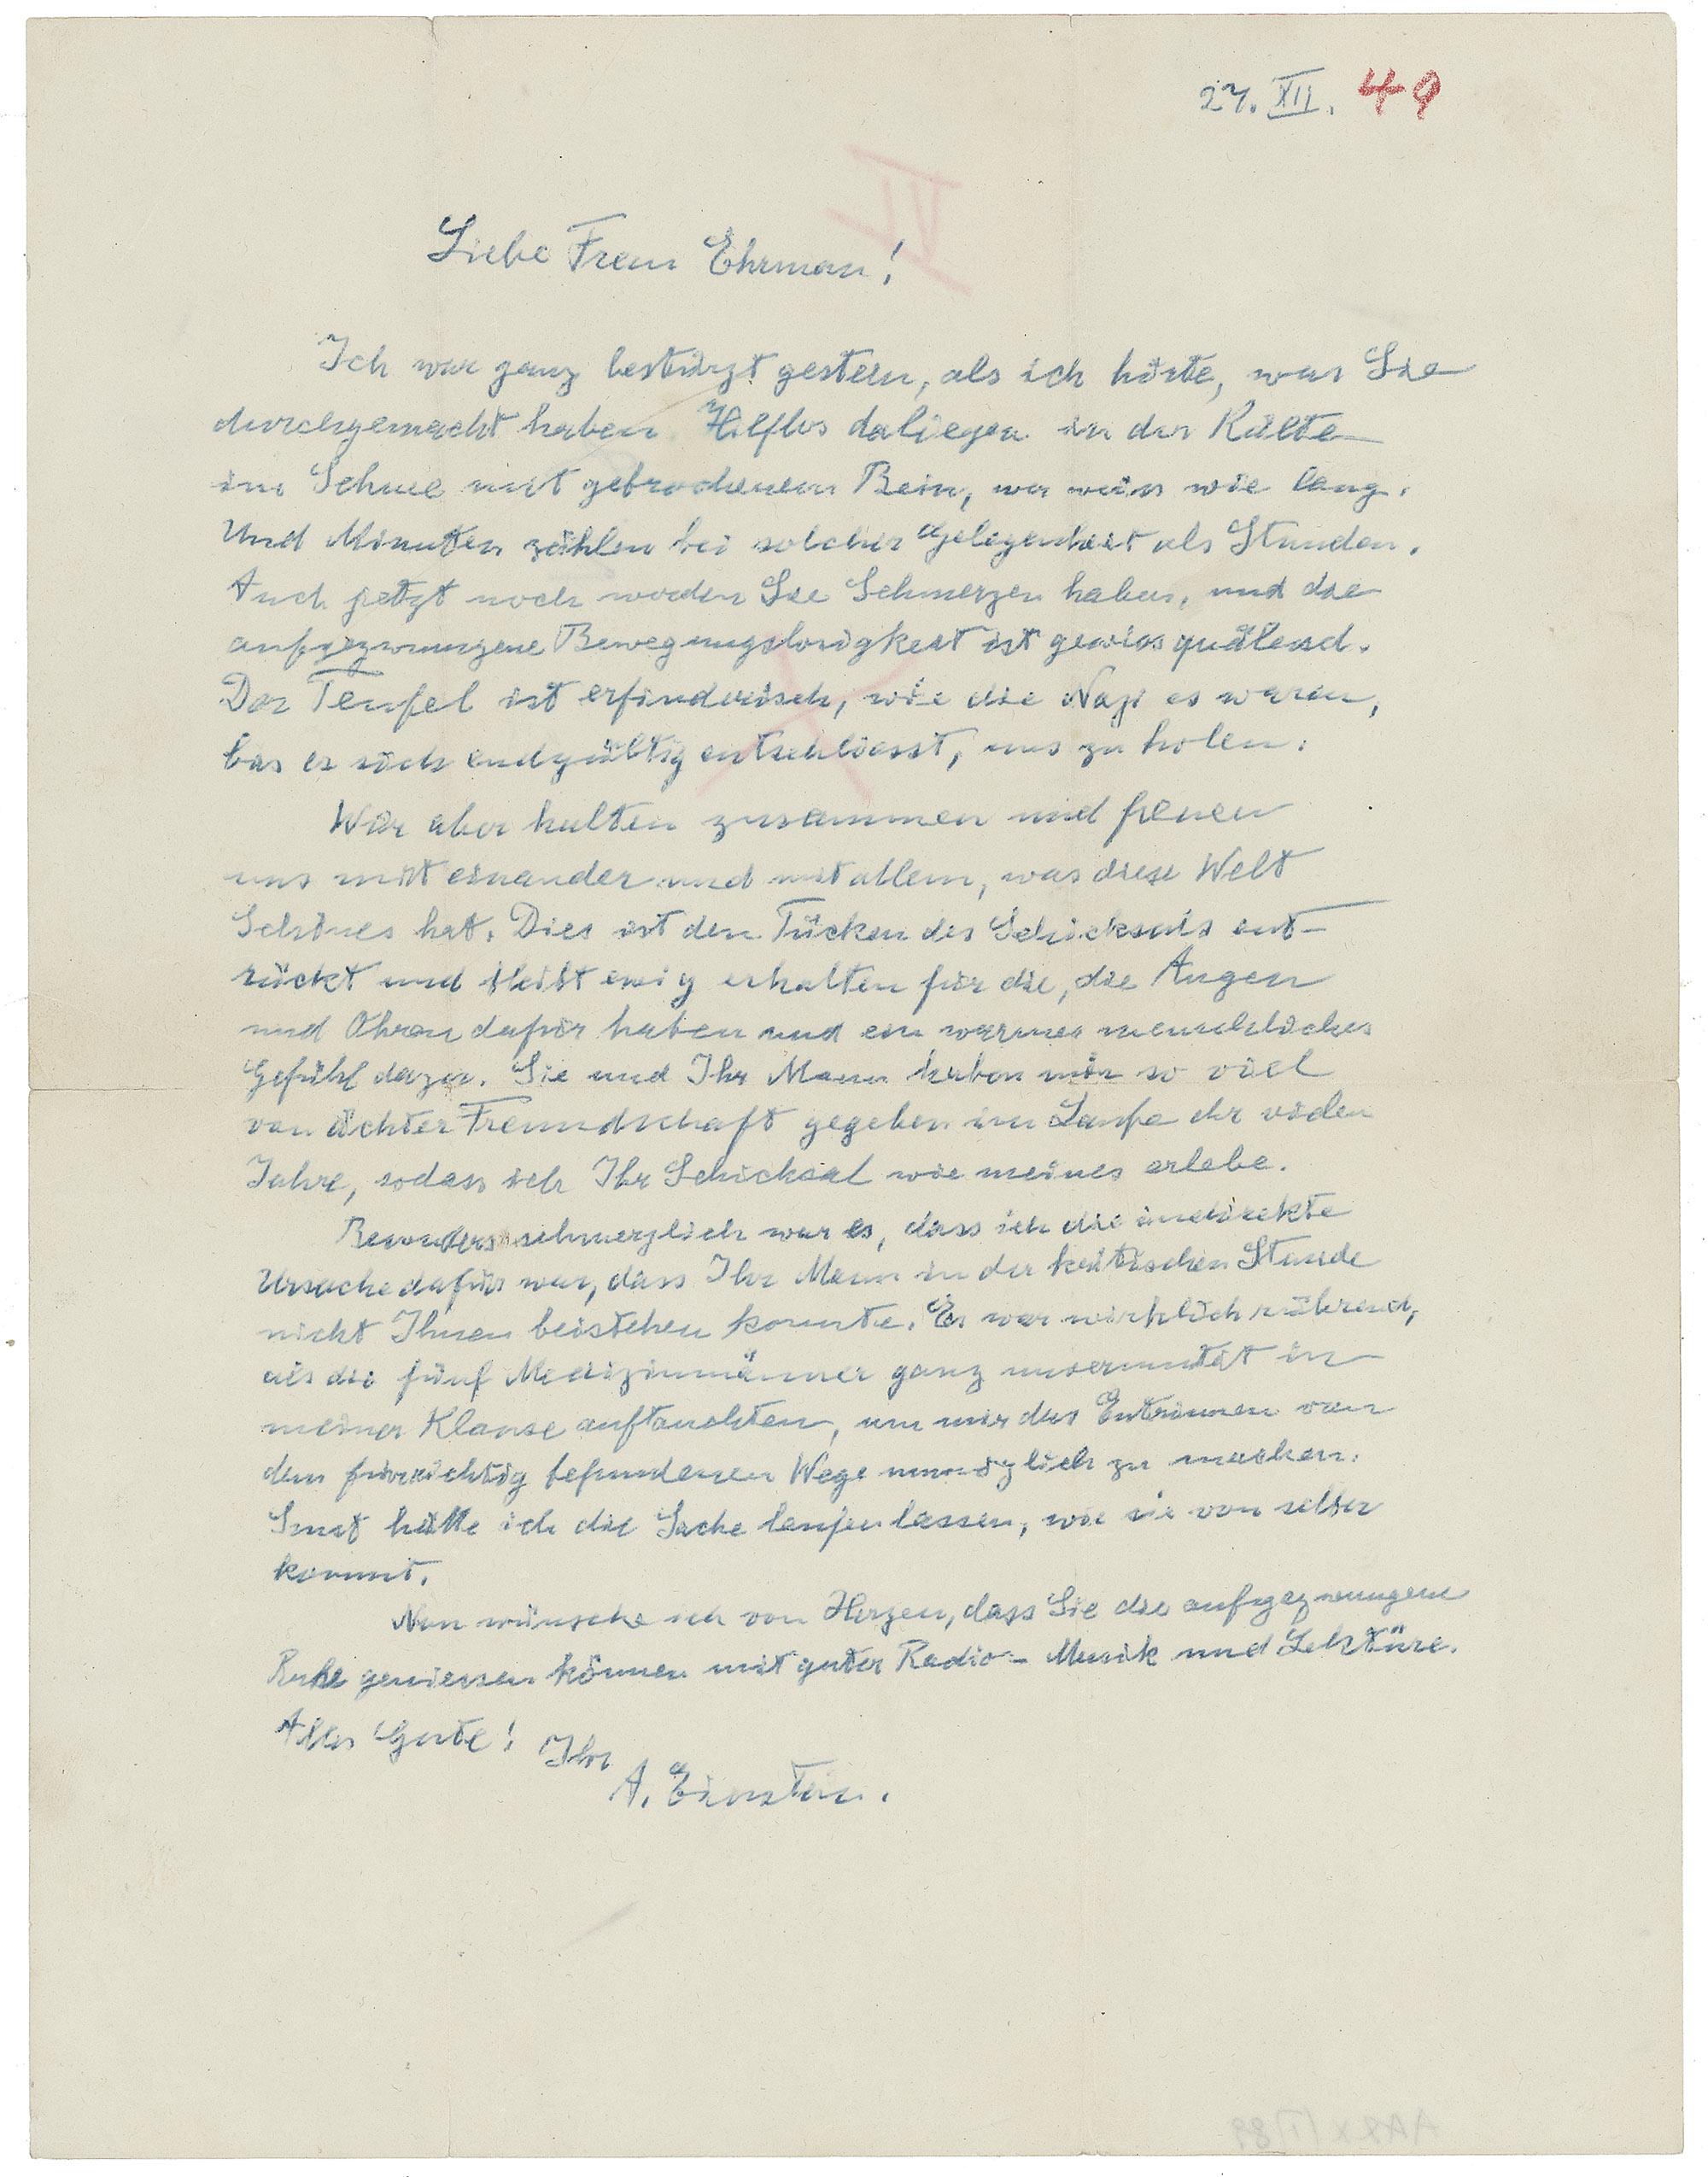 27. XII. 49
VI
Liebe Frau Ehrman!
Ich war ganz bestürzt gestern, als ich hörte, was Sie
durchgemacht haben. Hilflos daliegen in der Kälte
im Schnee mit gebrochenem Bein, wer weiss wie lang.
Und Minuten zählen bei solcher Gelegenheit als Stunden.
Auch jetzt noch werden Sie Schmerzen haben, und die
aufgezwungene Bewegungslosigkeit ist gewiss quälend.
Der Teufel ist erfinderisch, wie die Nazi es waren,
bis er sich endgültig entschliesst, uns zu holen.
Wir aber halten zusammen und freuen
uns mit einander und mit allem, was diese Welt
Schönes hat. Dies ist den Tücken des Schicksals ent-
rückt und bleibt ewig erhalten für die, die Augen
und Ohren dafür haben und ein warmes menschliches
Gefühl dazu. Sie und Ihr Mann haben mir so viel
von ächter Freundschaft gegeben im Laufe der vielen
Jahre, sodass ich Ihr Schicksal wie meines erlebe.
Besonders schmerzlich war es, dass ich die indirekte
Ursache dafür war, dass Ihr Mann in der kritischen Stunde
nicht Ihnen beistehen konnte. Es war wirklich rührend,
als die fünf Medizinmänner ganz unvermutet in
meiner Klause auftauchten, um mir das Entrinnen von
dem für richtig befundenen Wege unmöglich zu machen.
Sonst hätte ich die Sache laufen lassen, wie sie von selber
kommt.
Nun wünsche ich von Herzen, dass Sie die aufgezwungene
Ruhe geniessen können mit guter Radio-Musik und Lektüre.
Alles Gute! Ihr
A. Einstein.